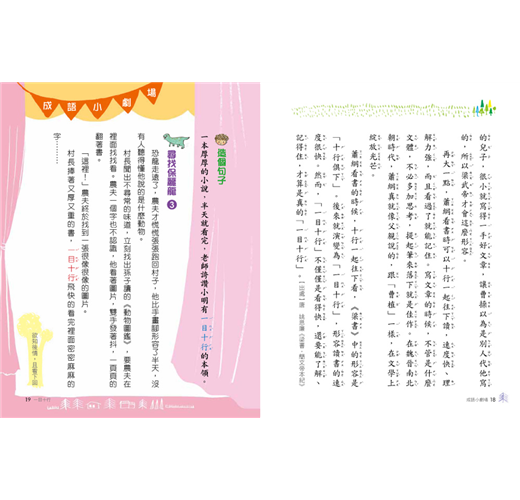 的兒子，很小就寫得一手好文章，讓曹操以為是別人代他寫
的，所以梁武帝才會這麼形容。
再大一點，蕭綱看書時可以十行一起往下讀，速度快、理
解力強，而且看過了就能記住。寫文章的時候，不管是什麼
文體，不必多加思考，提起筆來落下就是佳作。在魏晉南北
朝時代，蕭綱真就像父親說的，跟「曹植」一樣，在文學上
綻放光芒。
蕭綱看書的時候，十行一起往下看，《梁書》中的形容是
「十行俱下」。後來就演變為「一目十行」，形容讀書的速
度很快。然而，「一目十行」不僅僅是看得快，還要能了解、
記得住，才算是真的「一目十行」。
成語小劇場 18
成語小劇場
造個句子
一本厚厚的小說，半天就看完，老師誇讚小明有一目十行的本領。
尋找保麗龍 3
恐龍走遠了，農夫才慌慌張張跑回村子，他比手畫腳形容了半天，沒
有人聽得懂他說的是什麼動物。
村長聞出不尋常的味道，立刻找出孫子讀的《動物圖鑑》，要農夫在
裡面找找看。農夫一個字也不認識，他看著圖片，雙手發著抖，一頁頁的
翻著書。
「這裡！」農夫終於找到一張很像很像的圖片。
村長捧著又厚又重的書，一目十行飛快的看完裡面密密麻麻的
字……
欲知後情，且看下回
19 一目十行